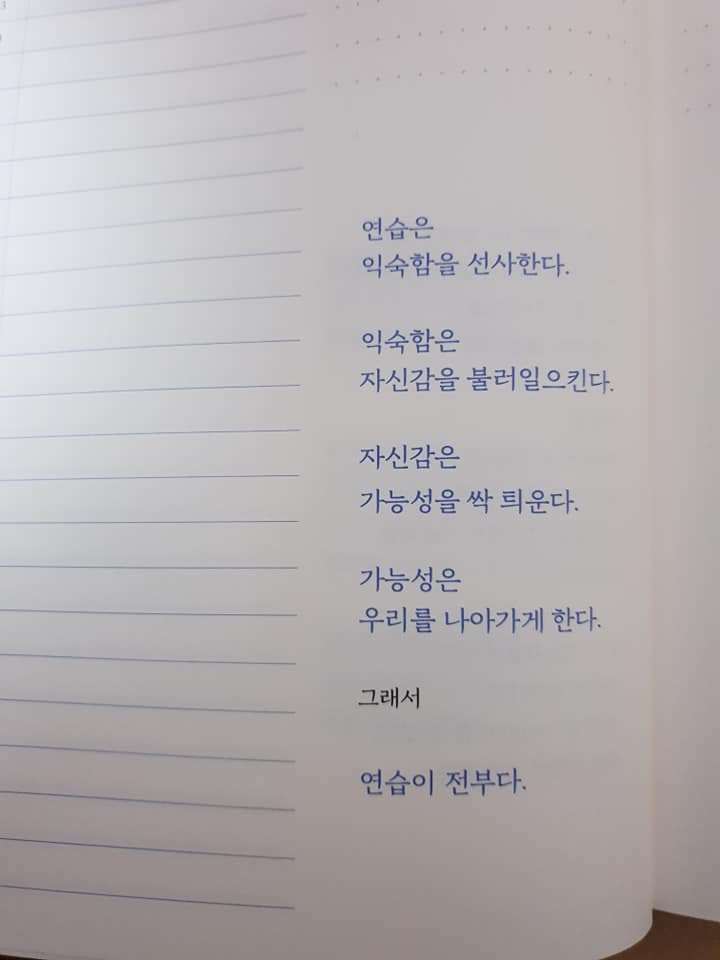 연습은
익숙함을 선사한다.
익숙함은
자신감을 불러일으킨다.
자신감은
가능성을 싹 틔운다.
가능성은
우리를 나아가게 한다.
그래서
연습이 전부다.